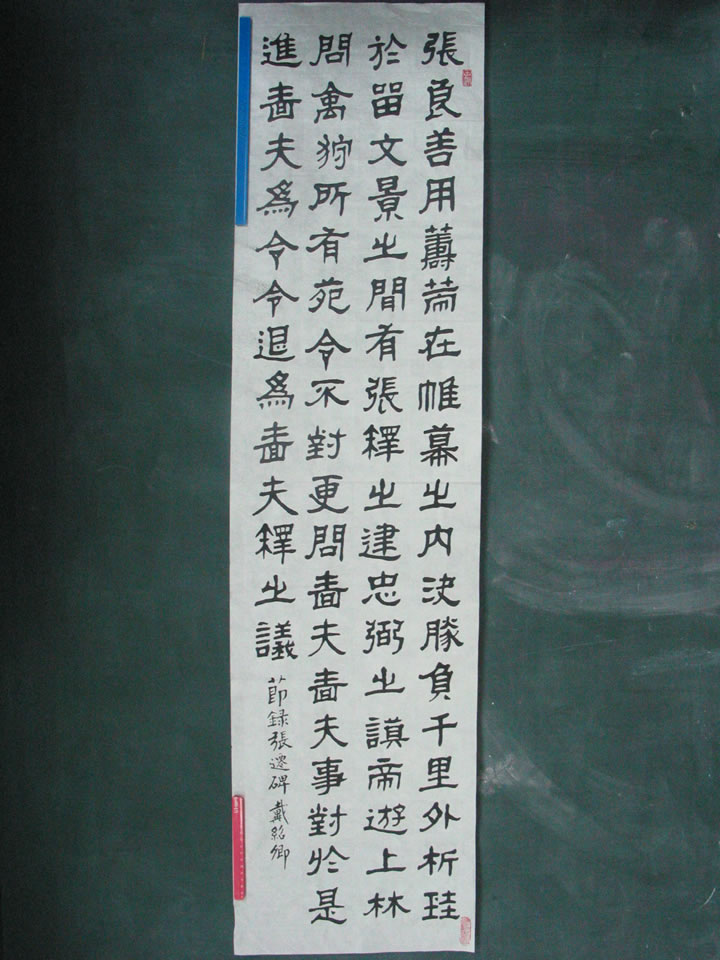 張良善用籌策在帷幕之內決勝負千里外析珪
於留文景之間有張釋之建忠弼之謨帝遊上林
問禽狩所有苑令不對更問嗇夫嗇夫事對於是
進嗇夫為令令退為嗇夫釋之議
節錄張遷碑 戴紹卿